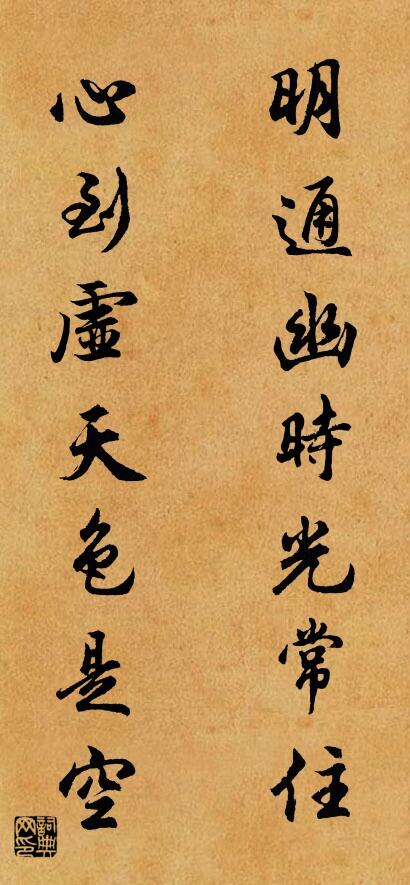 明通幽時光常住
心到虛天色是空
詞典網印